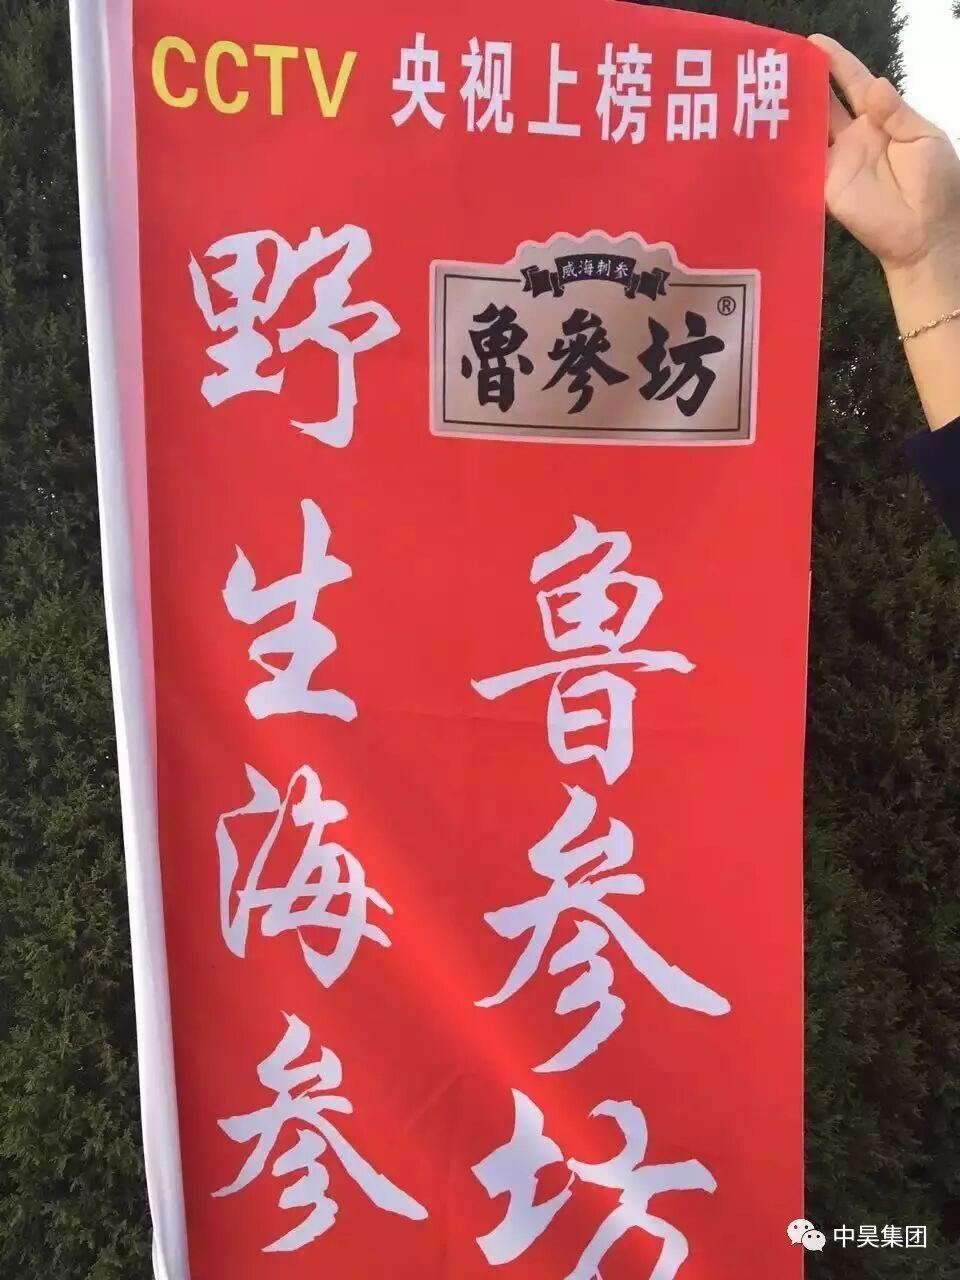 CCTV 央视上榜品牌
威海刺参
魯參坊®
鲁参坊
野生海参
中昊集团